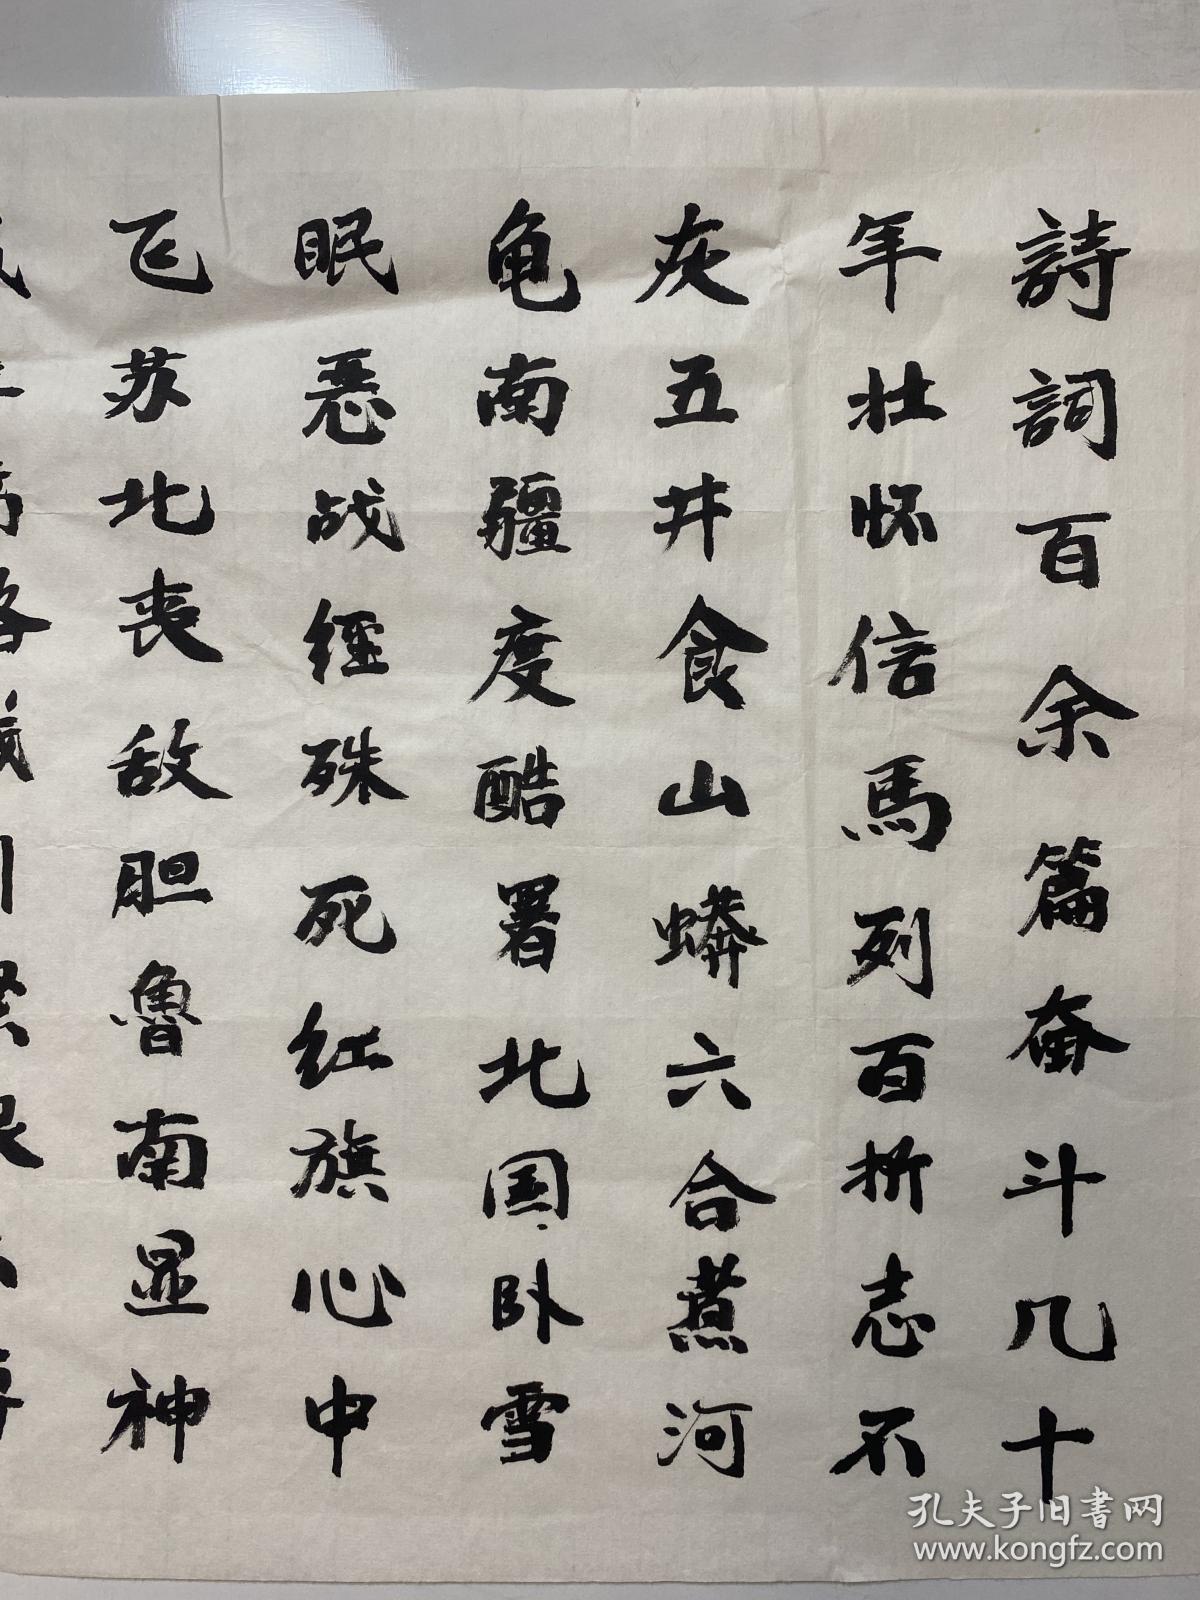 詩詞百余篇奋斗几十
年壮怀信馬列百折志不
灰五井食山蟒六合煮河
龟南疆度酷署北国卧雪
眠恶战经殊死红旗心中
飞苏北丧敌胆魯南显神
孔夫子旧书网
www.kongfz.com